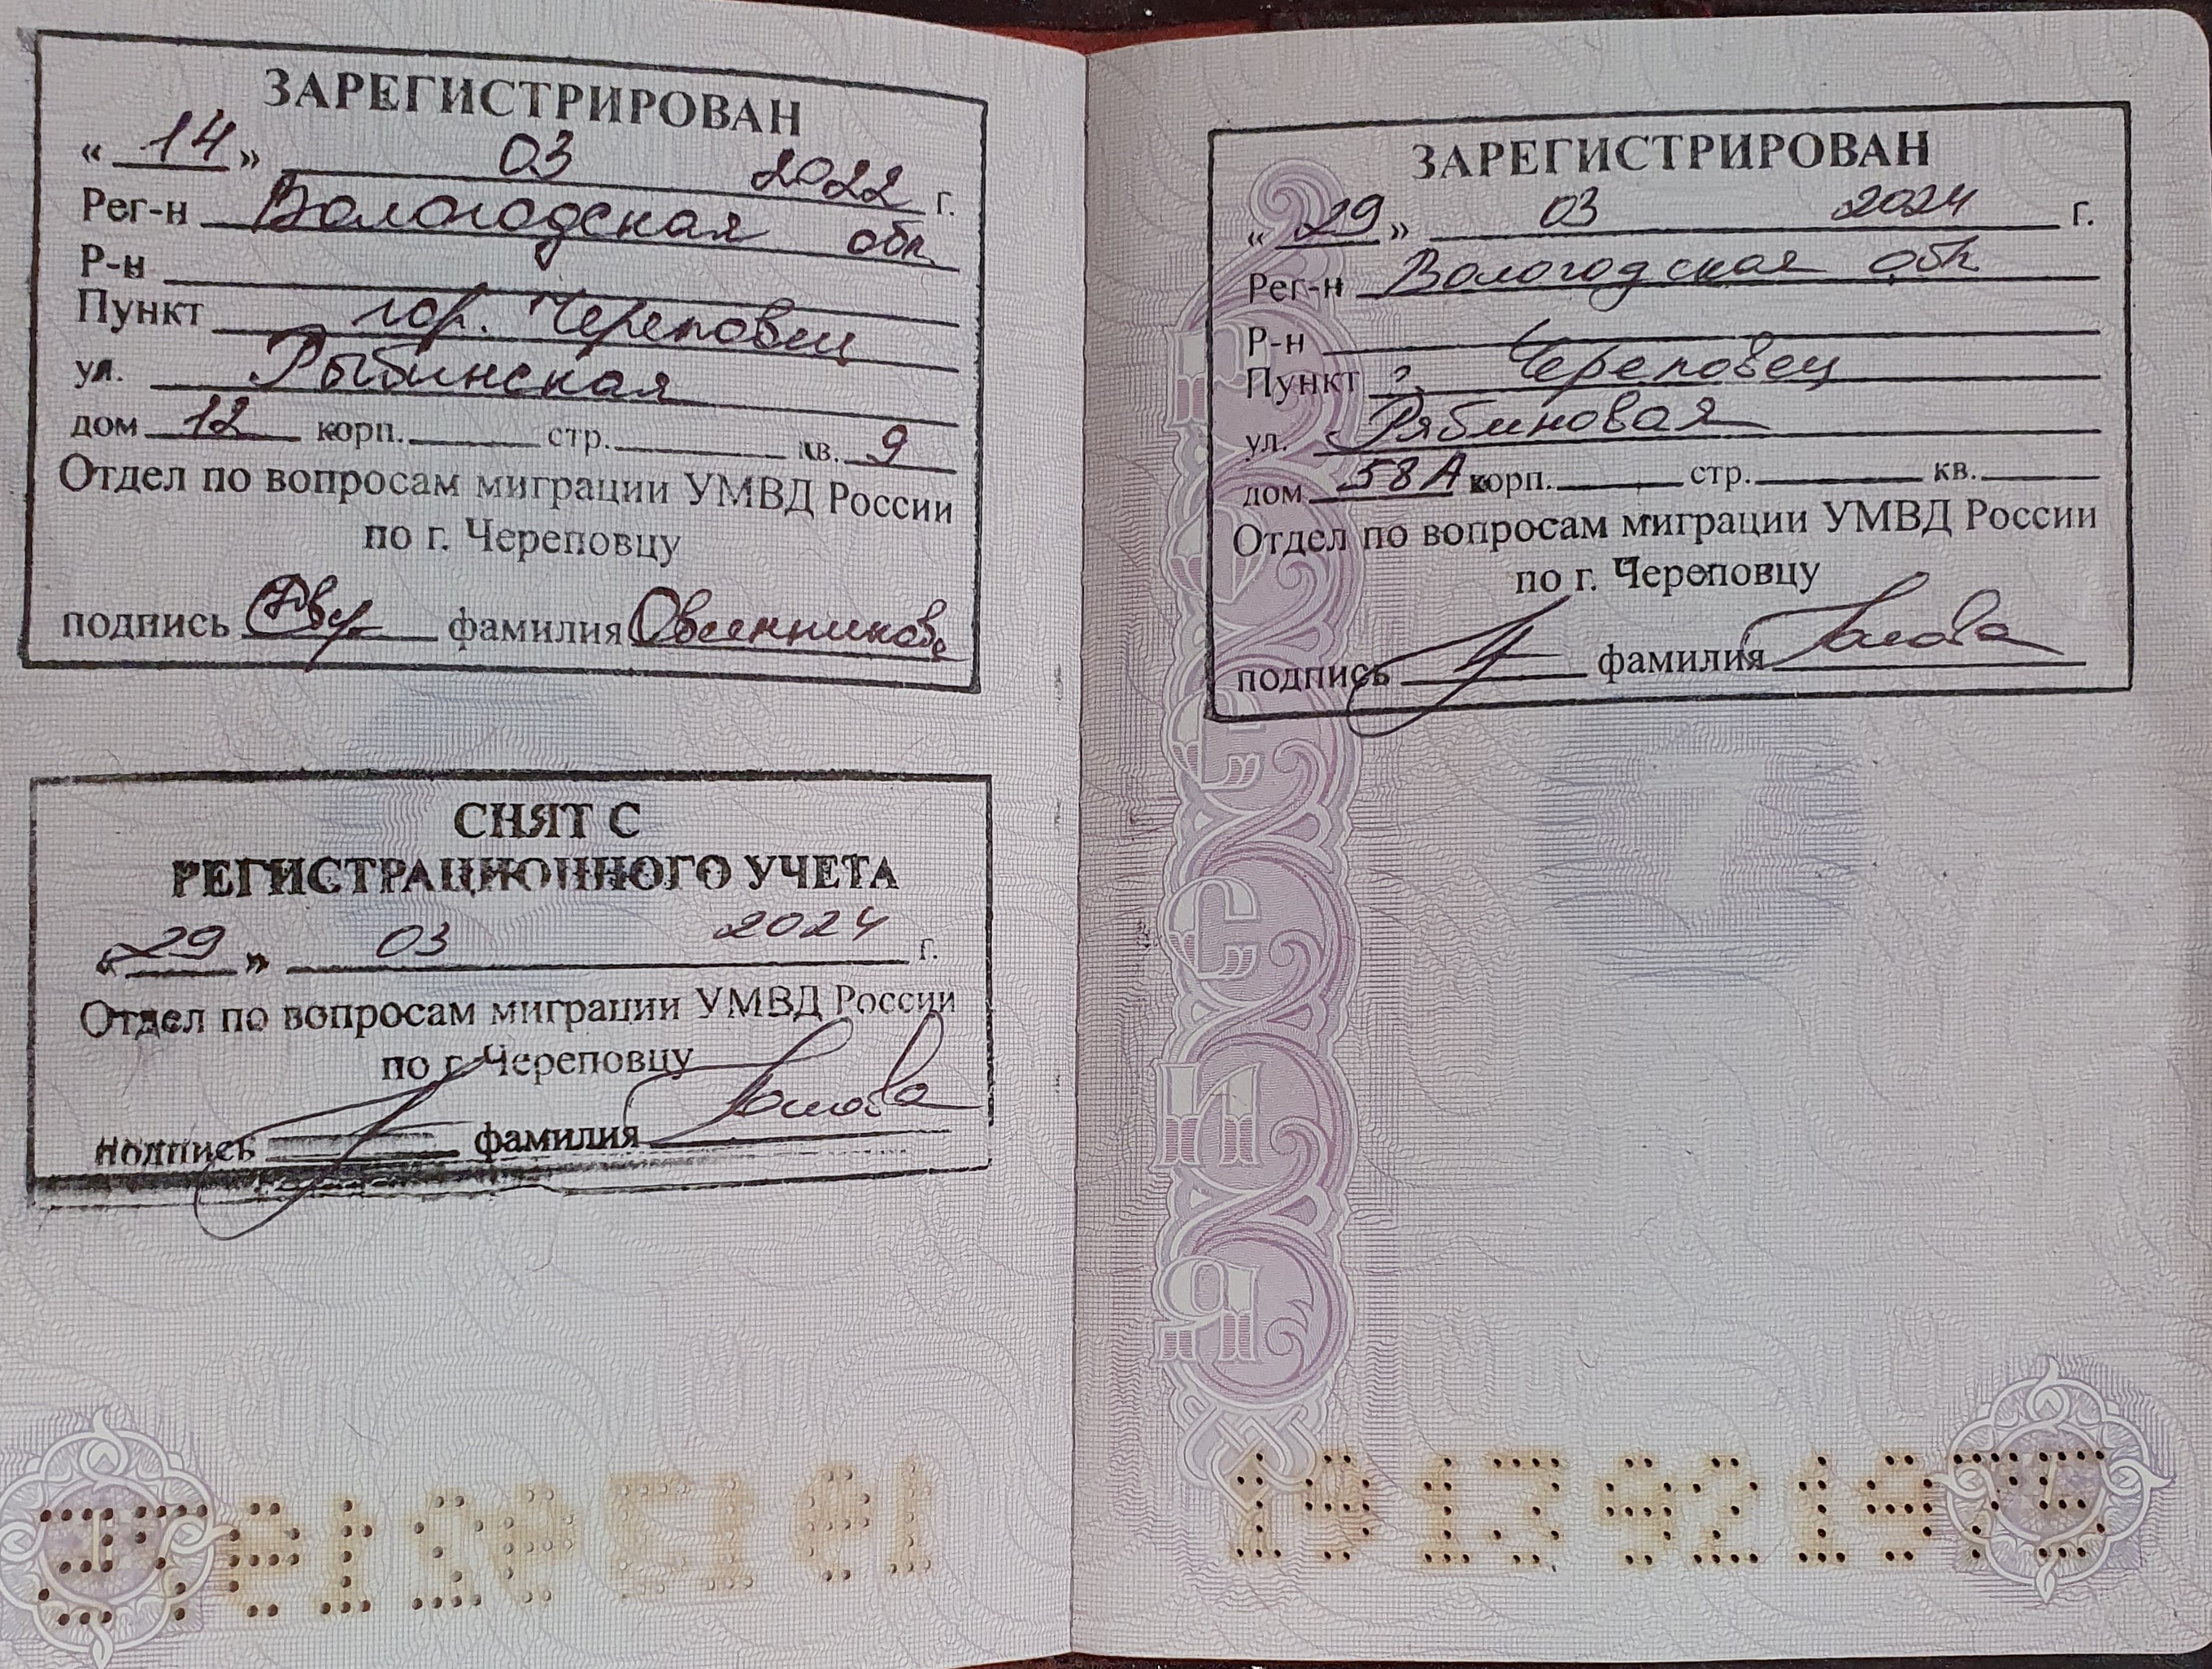 ЗАРЕГИСТРИРОВАН
« 14 » 03 2022 г.
Рег-н Вологодская обл.
Р-н
Пункт гор. Череповец
ул. Рыбинская
дом 12 корп. стр. кв. 9
Отдел по вопросам миграции УМВД России
по г. Череповцу
подпись фамилия Овсянникова
СНЯТ С
РЕГИСТРАЦИОННОГО УЧЕТА
« 29 » 03 2024 г.
Отдел по вопросам миграции УМВД России
по г. Череповцу
подпись фамилия
ЗАРЕГИСТРИРОВАН
« 29 » 03 2024 г.
Рег-н Вологодская обл
Р-н
Пункт г. Череповец
ул. Рябиновая
дом 58А корп. стр. кв.
Отдел по вопросам миграции УМВД России
по г. Череповцу
подпись фамилия
РОССИЯ
19 13 921975